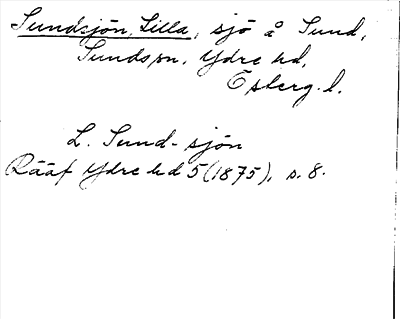 Sundsjön, Lilla, sjö å Sund,
Sunds sn, Ydre hd,
Östergl.
L. Sund-sjön
Rääf Ydre hd 5 (1875), s. 8.